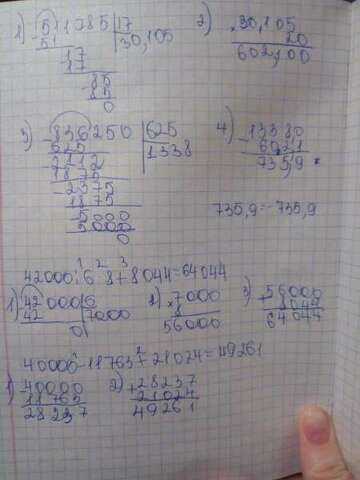 1) -511785 | 17
51 | 30,105
-17
17
-85
85
0
2) ×30,105
20
602,100
3) -836250 | 625
625 | 1338
-2112
1875
-2375
1875
-5000
5000
0
4) -13380
6021
735,9
735,9=-735,9
42000:6·8+8044=64044
1) 42000 | 6
42 | 7000
0
2) ×7000
8
56000
3) +56000
8044
64044
40000-11763+21024=49261
1) -40000
11763
28237
2) +28237
21024
49261